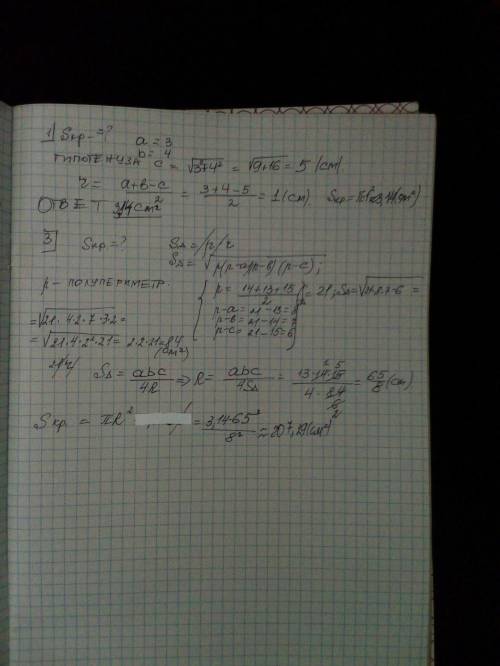 1) Sкр - ?
a = 3
b = 4
гипотенуза c = √3²+4² = √9+16 = 5 (см)
r = a+b-c / 2 = 3+4-5 / 2 = 1 (см) Sкр =
Ответ 3,14 см²
3) Sкр - ?
SΔ =
SΔ = √p(p-a)(p-b)(p-c);
p - полупериметр.
p = 14+13+15 / 2 = 21, SΔ = √21·8·7·6 =
p-a = 21-13 = 8
p-b = 21-14 = 7
p-c = 21-15 = 6
= √21·4·2·7·3·2 =
= √21·4·2²·21 = 2·2·21 = 84 (см²)
SΔ = abc / 4R ⇒ R = abc / 4SΔ = 13·14·15 / 4·84 = 65 / 8 (см)
Sкр = πR² = 3,14·65² / 8² ≈ 207,29 (см²)